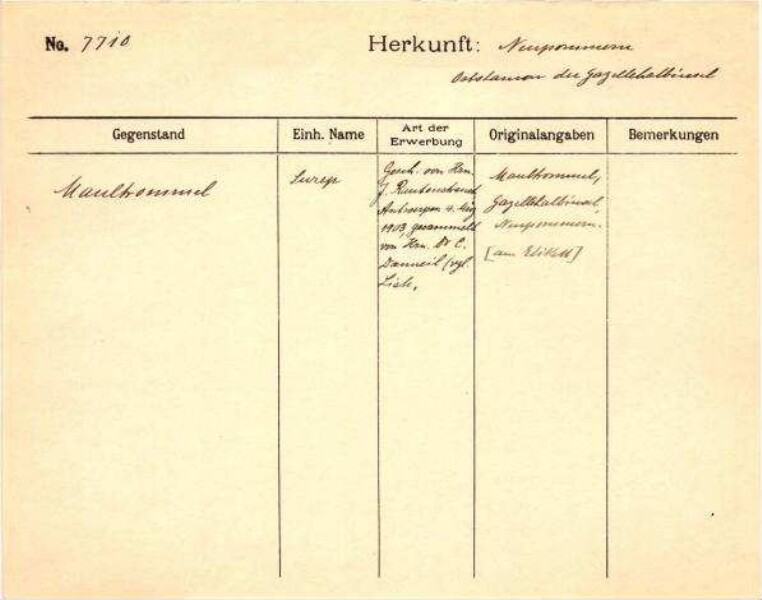 No. 7710
Herkunft: Neupommern
der Gazellehalbinsel
Gegenstand
Einh. Name
Art der Erwerbung
Originalangaben
Bemerkungen
Maultrommel
Gesch. von Hrn.
J. Rautenstrauch
Antwerpen 4. Aug
1903, gesammelt
von Hrn. Dr C.
Danneil (vgl.
Maultrommel,
Gazellehalbinsel,
Neupommern.
[am Etikett]